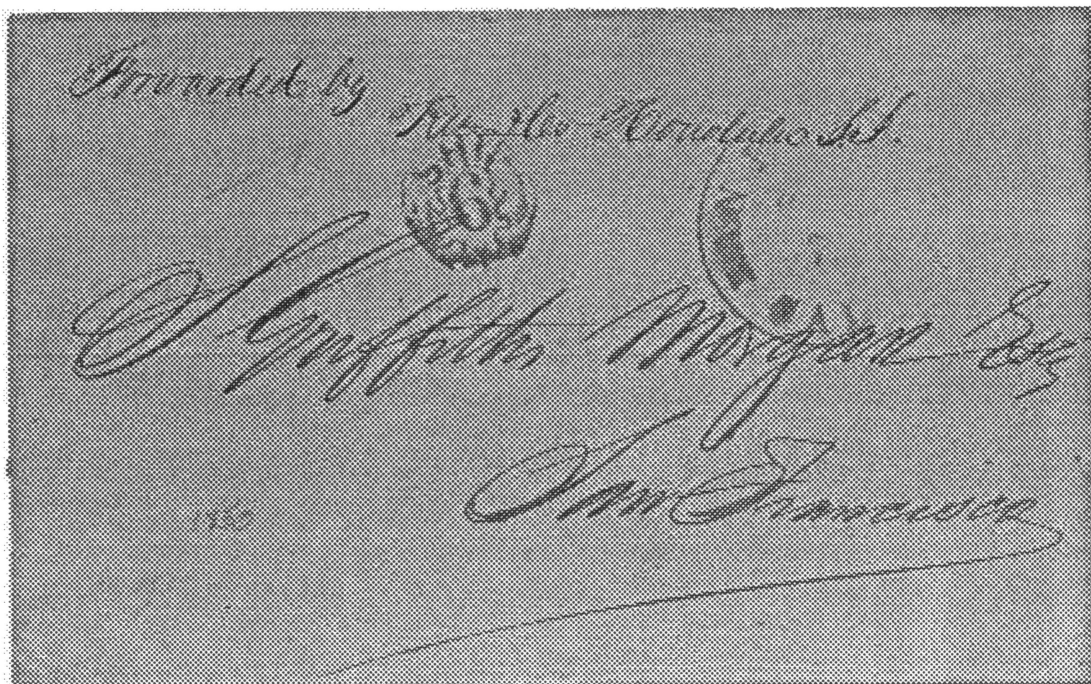 Forwarded by
& Co Honolulu S.I.
SHIP
6
S Griffitths Morgan Esq
San Francisco